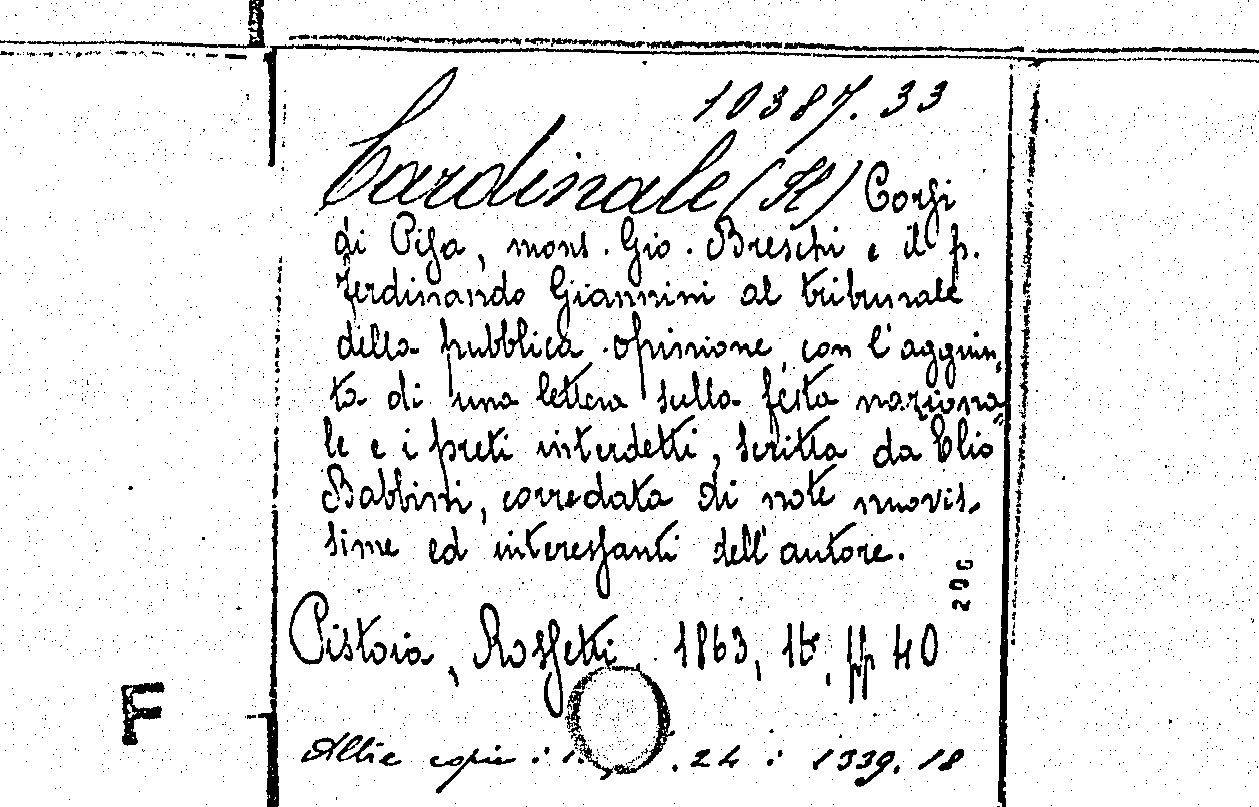 10387.33
Cardinale (Il) Corsi
di Pisa, mons. Gio. Breschi e il p.
Ferdinando Giannini al tribunale
della pubblica opinione, con l'aggiun-
ta di una lettera sulla festa naziona-
le e i preti interdetti, scritta da Elio
Babbini, corredata di note nuovis-
sime ed interessanti dell'autore.
200
Pistoia, Rossetti, 1863, 16, pp 40
F
Altre copie: 1. .24: 1339.18